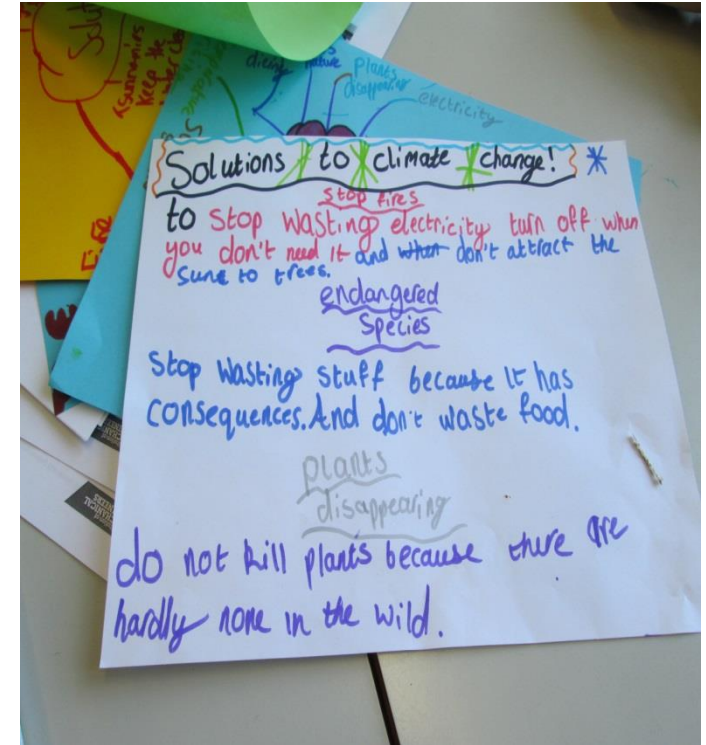 Solu
sunneries
Keep the
Fire
dieing
nature
plants
disappearing
electricity
Solutions to climate change!
Stop fires
to Stop wasting electricity turn off when
you don't need it and when don't attract the
Sune to trees.
endangered
Species
Stop wasting stuff because it has
consequences. And don't waste food.
plants
disappearing
do not kill plants because there are
hardly none in the wild.
MECHANICAL
ENGINEERS